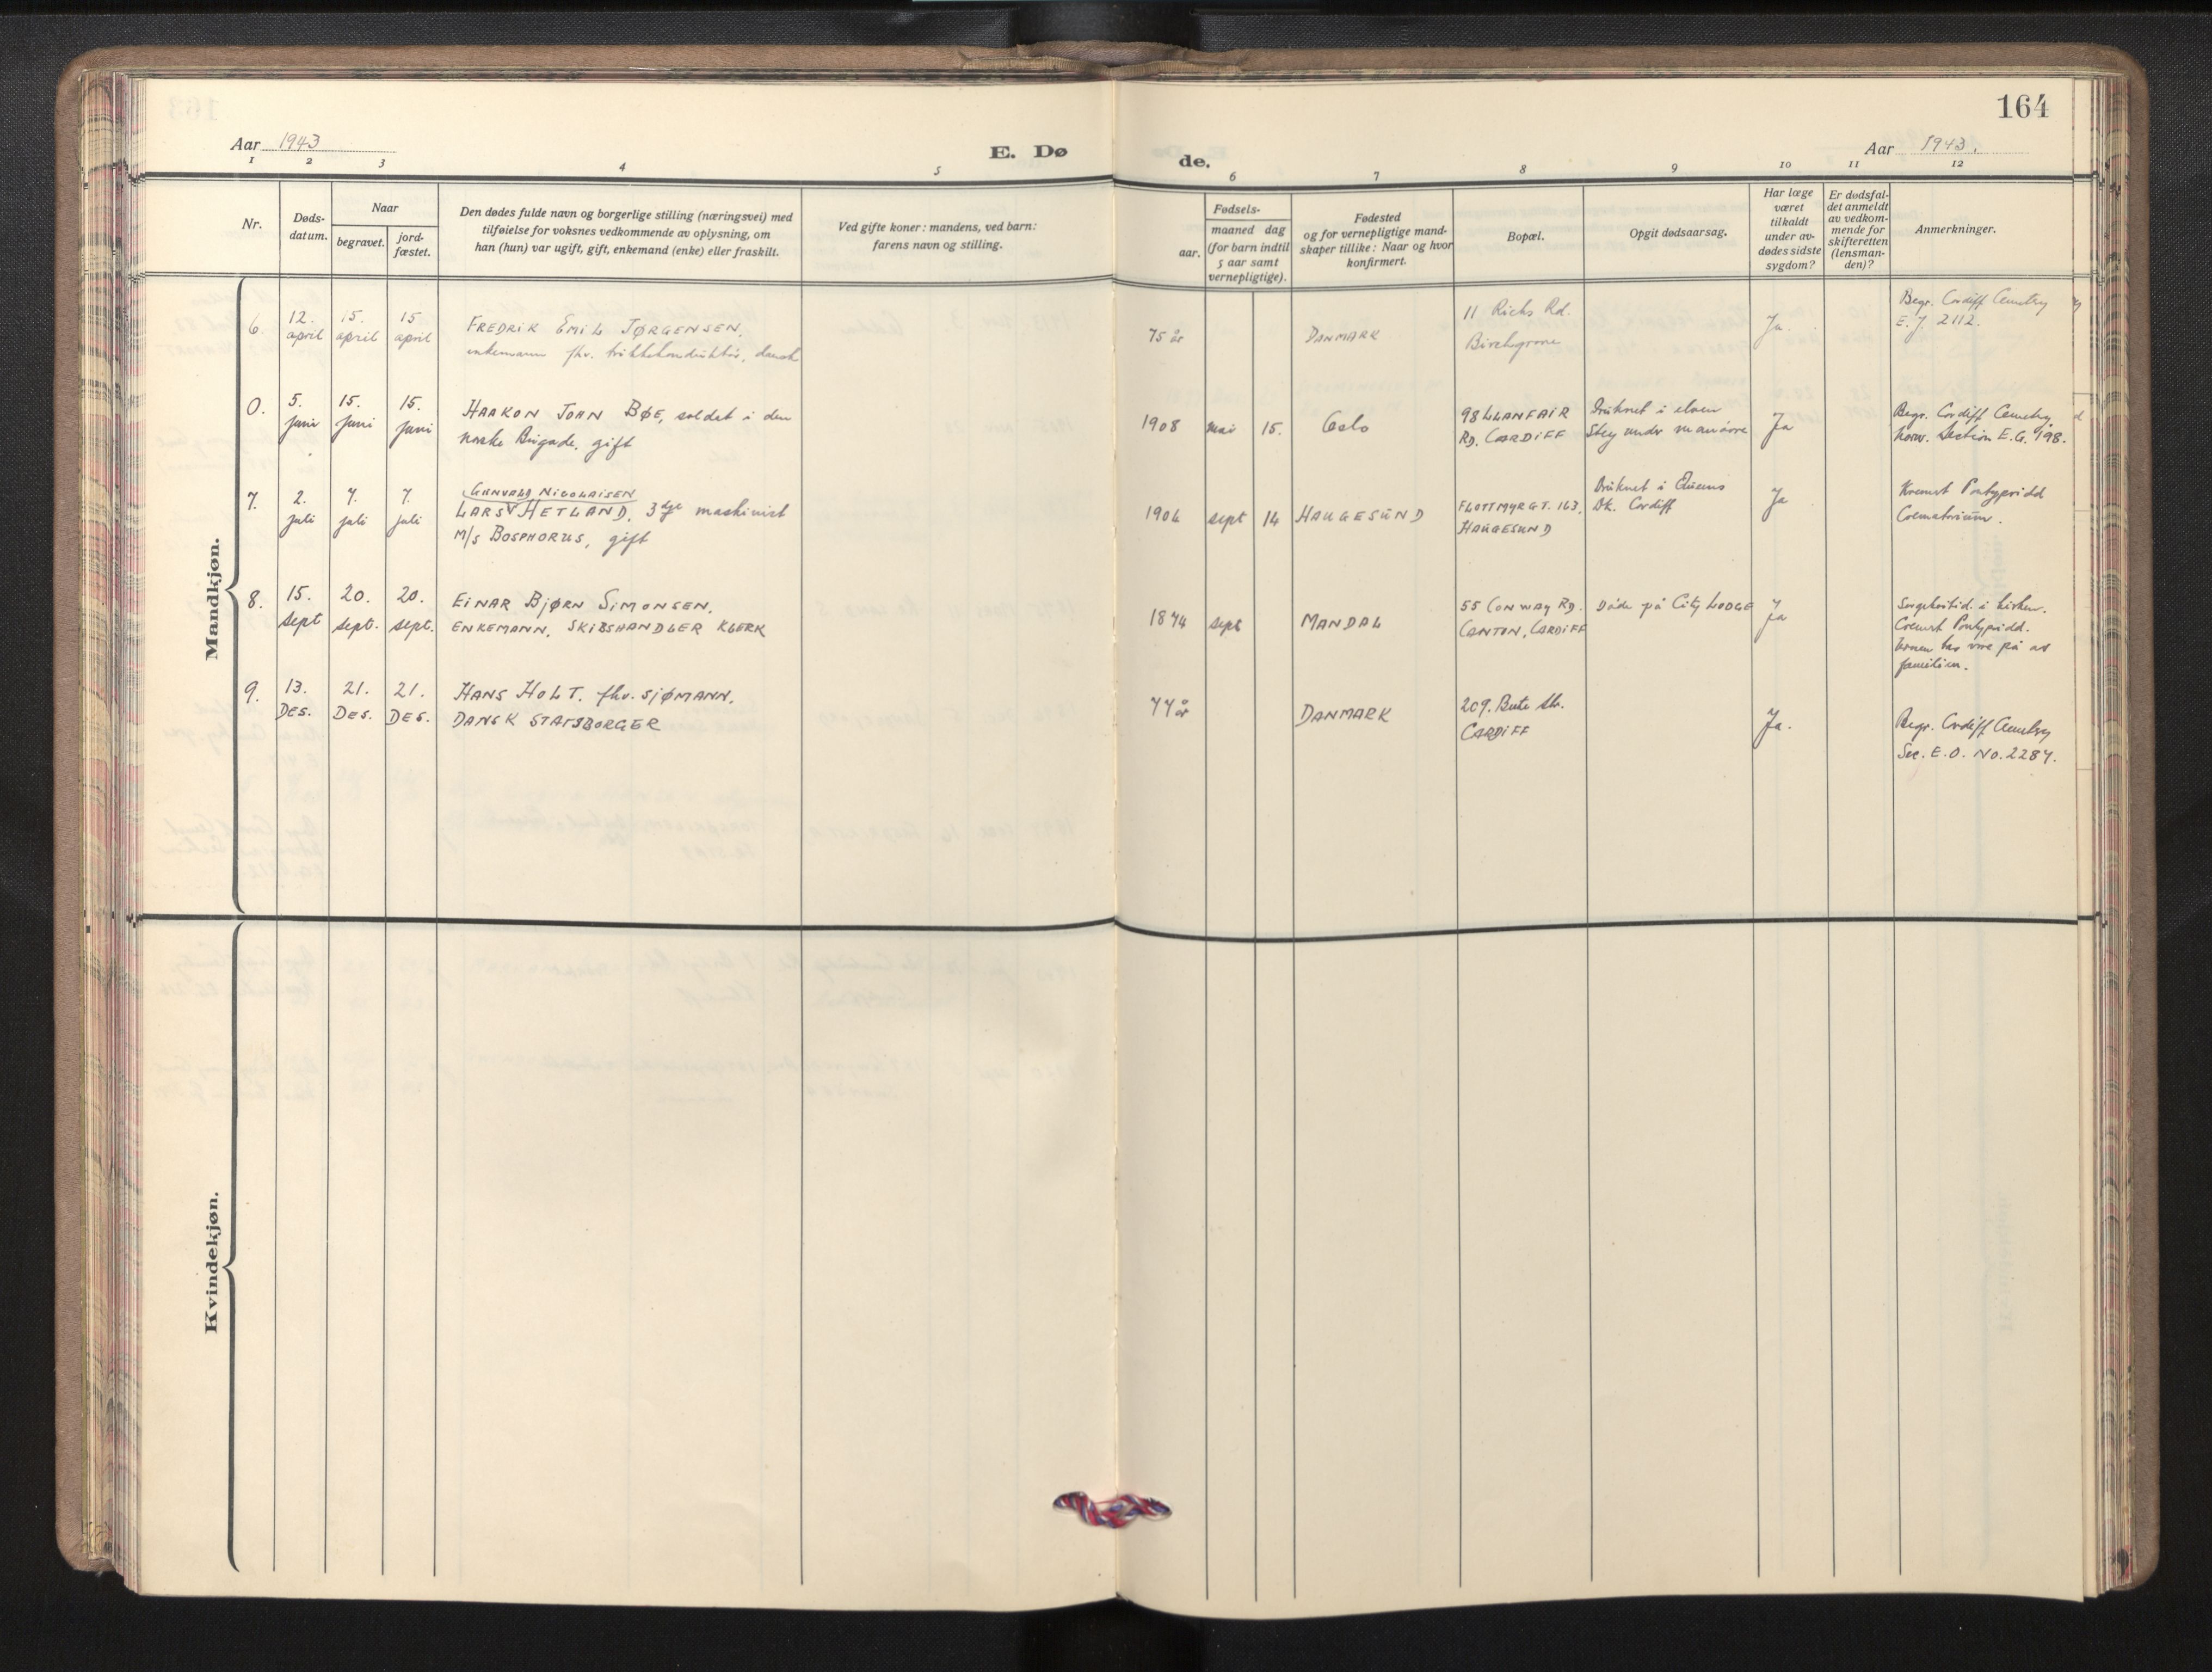 164
Aar 1943
E. Dø
de.
Aar 1943.
1 2 3 4 5
6 7 8 9 10 11 12
Nr.
Døds-
datum.
Naar
begravet.
jord-
fæstet.
Den dødes fulde navn og borgerlige stilling (næringsvei) med
tilføielse for voksnes vedkommende av oplysning, om
han (hun) var ugift, gift, enkemand (enke) eller fraskilt.
Ved gifte koner: mandens, ved barn:
farens navn og stilling.
Fødsels-
aar.
maaned dag
(for barn indtil
5 aar samt
vernepligtige).
Fødested
og for vernepligtige mand-
skaper tillike: Naar og hvor
konfirmert.
Bopæl.
Opgit dødsaarsag.
Har læge
været
tilkaldt
under av-
dødes sidste
sygdom?
Er dødsfal-
det anmeldt
av vedkom-
mende for
skifteretten
(lensman-
den)?
Anmerkninger.
Mandkjøn.
6.
12.
april
15.
april
15
april
FREDRIK EMIL JØRGENSEN,
enkemann fhv. trikkekonduktør, dansk
75 år
DANMARK
11 Richs Rd.
Birchgrove
Ja.
Begr. Cardiff Cemetry
E. J. 2112.
0.
5.
juni
15.
juni
15.
juni
HAAKON JOHN BØE, soldat i den
norske Brigade, gift
1908 mai 15.
Oslo
98 LLANFAIR
RD. CARDIFF
Druknet i elven
under
Ja
Begr. Cardiff Cemetry
Norw. Section E.G. 198.
7.
2.
juli
7.
juli
7.
juli
GUNVALD NICOLAISEN
LARS HETLAND, 3dje maskinist
M/S BOSPHORUS, gift
1904 sept 14
HAUGESUND
FLOTTMYRGT. 163,
HAUGESUND
Druknet i Queens
Dk. Cardiff
Ja
Kremert Pontypridd
Crematorium.
8.
15.
sept
20.
sept.
20.
sept.
EINAR BJØRN SIMONSEN,
ENKEMANN, SKIBSHANDLER KLERK
1874 sept
MANDAL
55 CONWAY RD.
CANTON, CARDIFF
Døde på City LODGE
Ja
Sørgehøitid. i kirken.
Cremert Pontypridd.
Urnen tas vare på av
familien.
9.
13.
DES.
21.
DES.
21.
DES.
HANS HOLT. fhv. SJØMANN,
DANSK STATSBORGER
77 år
DANMARK
209. Bute Str.
CARDIFF
Ja.
Begr. Cardiff Cemetry
Sec. E.O. No. 2287.
Kvindekjøn.